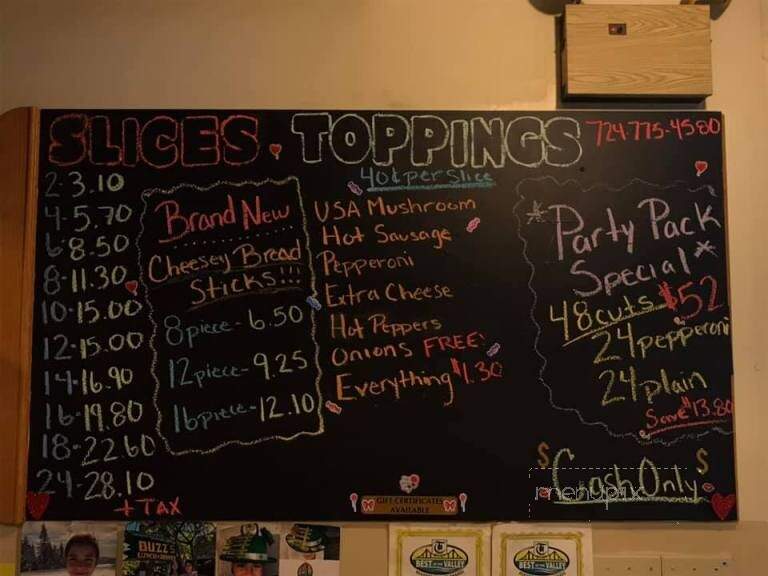 SLICES
2-3.10
4-5.70
6-8.50
8-11.30
10-15.00
12-15.00
14-16.90
16-19.80
18-22.60
24-28.10
+TAX
Brand New
Cheesey Bread
Sticks!!!
8piece-6.50
12piece-9.25
16piece-12.10
TOPPINGS
40¢ per slice
USA Mushroom
Hot Sausage
Pepperoni
Extra Cheese
Hot Peppers
Onions FREE!
Everything $1.30
GIFT CERTIFICATES
AVAILABLE
724-775-4580
*Party Pack
Special*
48cuts $52
24pepperoni
24plain
Save $13.80
$Cash Only$
menupix
BUZZ'S
BEST OF THE VALLEY
BEST OF THE VALLEY